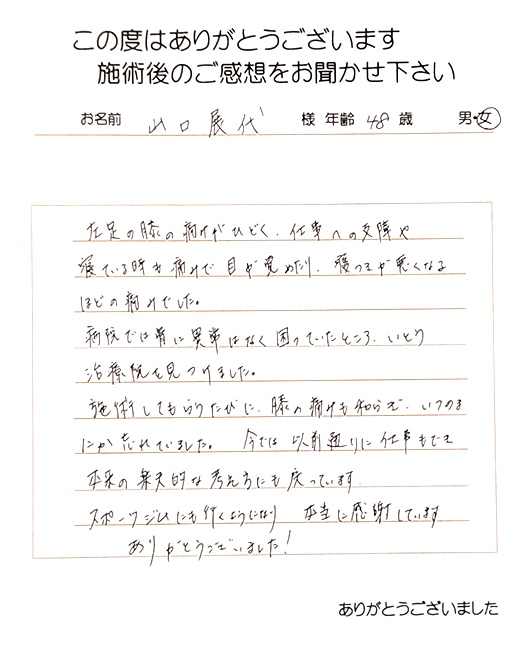 この度はありがとうございます
施術後のご感想をお聞かせ下さい
お名前 山口展代 様 年齢 48 歳 男・女
左足の膝の痛みがひどく、仕事への支障や
寝ている時も痛みで目が覚めたり、寝つきが悪くなる
ほどの痛みでした。
病院では骨に異常はなく困っていたところ、いとり
治療院を見つけました。
施術してもらうたびに、膝の痛みも和らぎ、いつのま
にか忘れていました。 今では以前通りに仕事もでき
本来の楽天的な考え方にも戻っています。
スポーツジムにも行くようになり 本当に感謝しています
ありがとうございました!
ありがとうございました